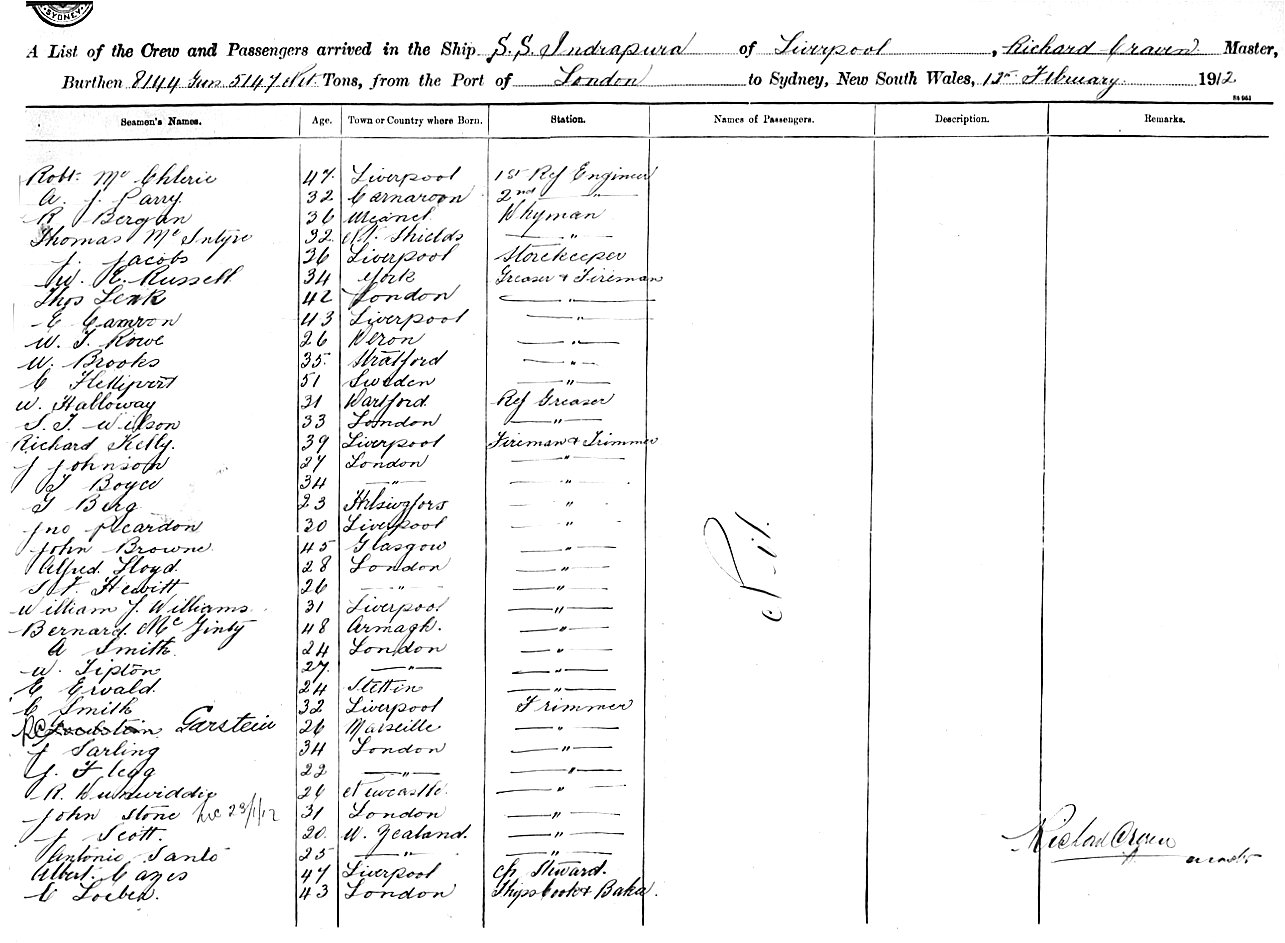 SYDNEY
A List of the Crew and Passengers arrived in the Ship S.S. Indrapura of Liverpool, Richard Craven Master,
Burthen 8144 5147 Tons, from the Port of London to Sydney, New South Wales, 1st February 1912
Seamen's Names. Age. Town or Country where Born. Station. Names of Passengers. Description. Remarks.
Robt. Mc 47 Liverpool 1st Ref Engineer
A. J. Parry 32 Carnaroon 2nd "
R Bergan 36 Whyman
Thomas Mc Intyre 32 Nt. Shields "
J. Jacobs 36 Liverpool Storekeeper
W. E. Russell 34 York Greaser & Fireman
Thos Lenk 42 London "
E Camron 43 Liverpool "
W. T. Rowe 26 "
W. Brooks 35 Stratford "
C 51 Sweden "
W. Halloway 31 Dartford Ref Greaser
S. T. Wilson 33 London "
Richard Kelly. 39 Liverpool Fireman & Trimmer
J Johnson 27 London "
T Boyce 34 " "
G Berg 23 Helsingfors "
Jno Reardon 30 Liverpool "
John Browne 45 Glasgow "
Alfred Lloyd 28 London "
Hewitt 26 " "
William J. Williams 31 Liverpool "
Bernard Mc Ginty 48 Armagh. "
A Smith 24 London "
W. Tipton 27. " "
E Ervald. 24 Stettin "
C Smith 32 Liverpool Trimmer
Garstein 26 Marseille "
J Sarling 34 London "
J. Flegg 22 " "
R. Dunwiddie 26 Newcastle "
John Stone 23/1/12 31 London "
J Scott. 20 N. Zealand. "
Antonio Santo 25 " "
Albert Cazes 47 Liverpool Ch Steward.
C Loeben 43 London Ships Cook & Baker.
Nil.
Richard Craven
Master